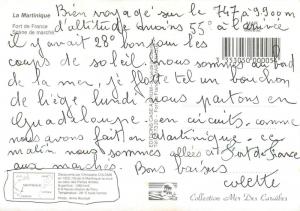 La Martinique
Fort de France
Scène de marché
Bien voyagé sur le 747 à 9900 m
d'altitude de moins 55° à l'arrivée
il y avait 28° bon pour les
coups de soleil nous sommes au bord
de la mer, je flotte tel un bouchon
de liège, lundi nous partons en
Guadaloupe en circuits, comme
nous avons fait en Martinique ce
matin nous sommes allées à Fort de France
aux marchés. Bons baisers
Colette
MARTINIQUE
Collection Mer Des Caraïbes